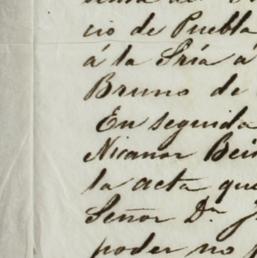 cio de Puebla
á la Sría á
Bruno de
En seguida
Nicanor
la acta que
Señor Dn J
poder no